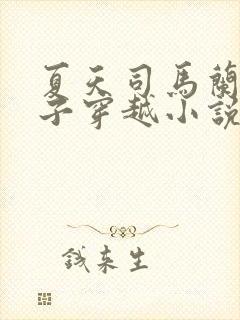 夏天司馬蘭
子穿越小說
錢來生